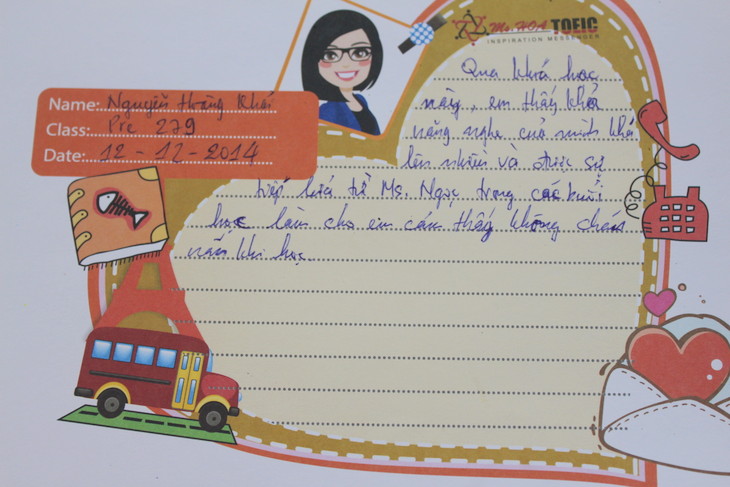 Ms. HOA TOEIC
INSPIRATION MESSENGER
Name: Nguyễn Hoàng Khải
Class: Pre 279
Date: 12 - 12 - 2014
Qua khoá học
này, em thấy khả
năng nghe của mình khá
lên nhiều và được sự
tiếp lửa từ Ms. Ngọc trong các buổi
học làm cho em cảm thấy không chán
nản khi học.